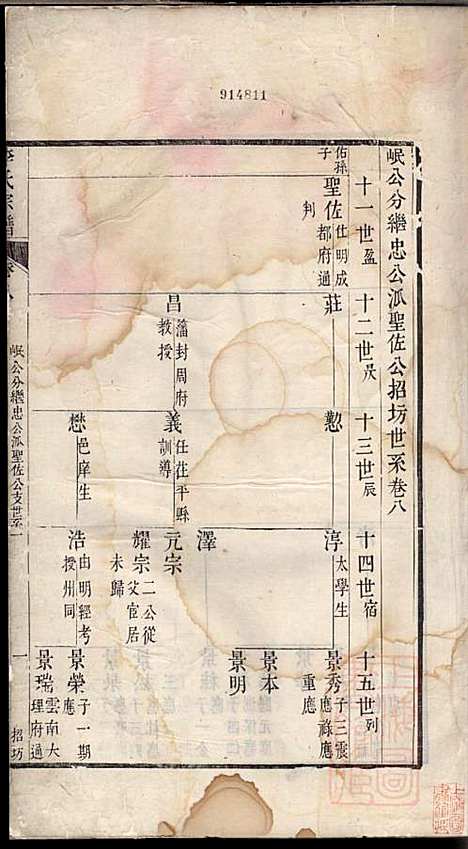 914811
岷公分繼忠公派聖佐公招坊世系卷八
十一世盈
十二世昃
十三世辰
十四世宿
十五世列
佑孫子
聖佐
仕明成都府通判
莊
懃
淳
太學生
景秀
子三震應祿應重應
景本
景明
澤
昌
藩封周府教授
義
任茌平縣訓導
元宗
耀宗
二公從父官居未歸
懋
邑庠生
浩
由明經考授州同
景榮
子一期應
景瑞
雲南大理府通
氏宗譜
岷公分繼忠公派聖佐公支世系一
一
招坊